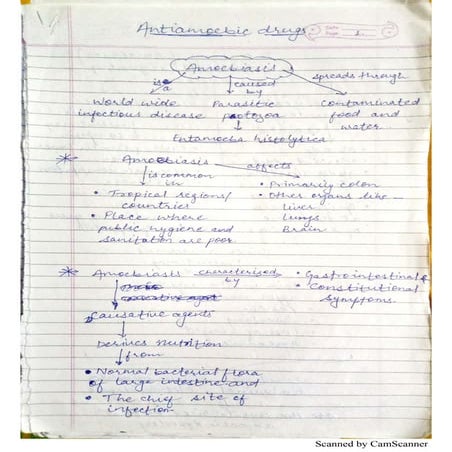 Antiamoebic drugs
Date
Page 1.
Amoebiasis
is a caused by spreads through
World wide Parasitic Contaminated
infectious disease protozoa food and
water
Entamoeba histolytica
* Amoebiasis affects
is common in
• Primarily colon
• Tropical regions/ • Other organs like —
countries liver
• Place where lungs
public hygiene and Brain
sanitation are poor
* Amoebiasis characterised by • Gastrointestinal &
• Constitutional
symptoms.
causative agent
Causative agents
Derives Nutrition
from
• Normal bacterial flora
of large intestine and
• The chief site of
infection
Scanned by CamScanner